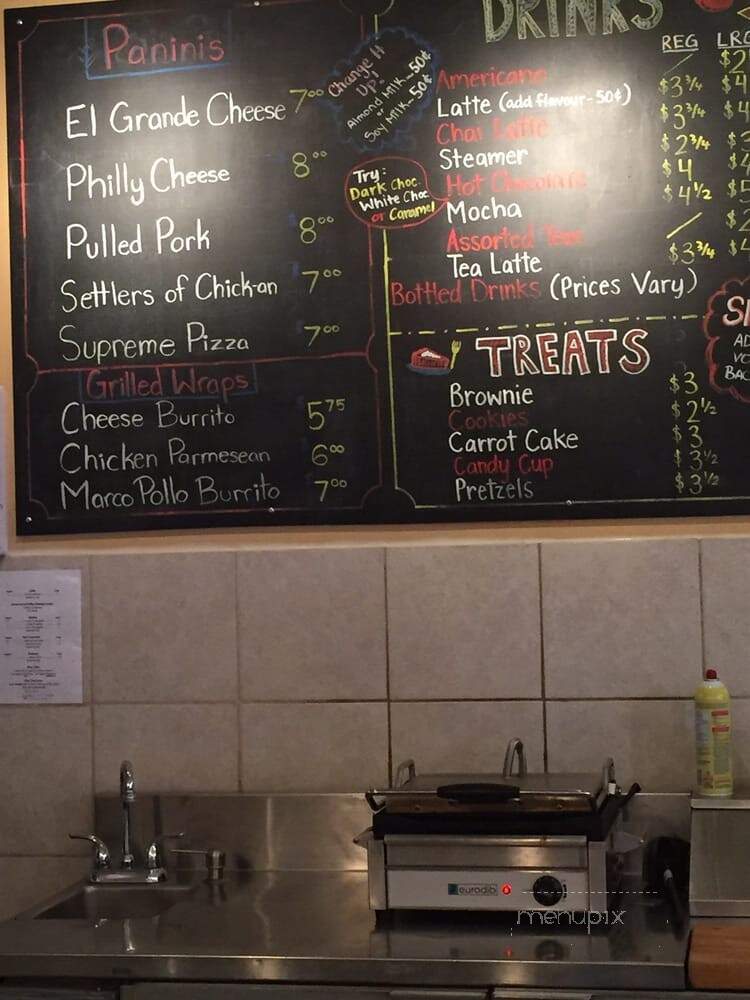 Paninis
El Grande Cheese 7⁰⁰
Philly Cheese 8⁰⁰
Pulled Pork 8⁰⁰
Settlers of Chick-an 7⁰⁰
Supreme Pizza 7⁰⁰
Grilled Wraps
Cheese Burrito 5⁷⁵
Chicken Parmesean 6⁰⁰
Marco Pollo Burrito 7⁰⁰
Change It
Up!
Almond Milk - 50¢
or
Soy Milk - 50¢
Try:
Dark Choc.
White Choc
or Caramel
DRINKS
REG LRG
Americano
Latte (add flavour - 50¢)
Chai Latte
Steamer
Hot Chocolate
Mocha
Assorted Teas
Tea Latte
Bottled Drinks (Prices Vary)
$3 3/4
$3 3/4
$2 3/4
$4
$4 1/2
$3 3/4
TREATS
Brownie $3
Cookies $2 1/2
Carrot Cake $3
Candy Cup $3 1/2
Pretzels $3 1/2
eurodib
menupix